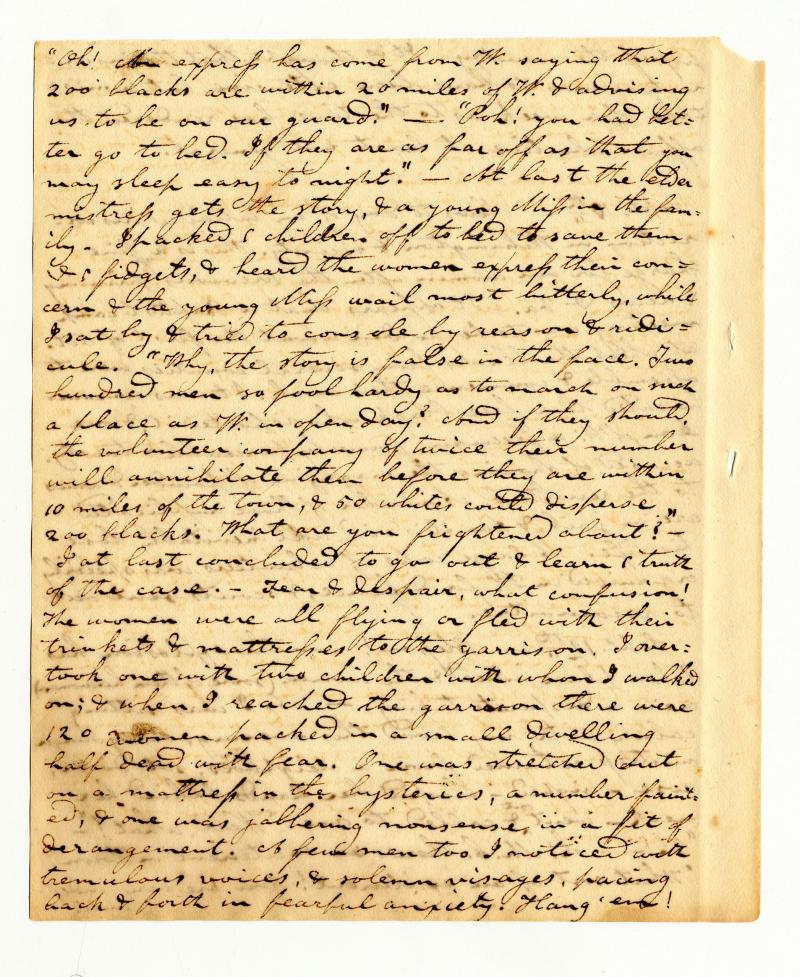 "Oh! An express has come from W. saying that
200 blacks are within 20 miles of W. & advising
us to be on our guard." — "Poh! you had bet-
ter go to bed. If they are as far off as that you
may sleep easy to night." — At last the elder
mistress gets the story, & a young Miss in the fam-
ily. I packed ς children off to bed to save them
& ς fidgets, & heard the women express their con-
cern & the young Miss wail most bitterly, while
I sat by & tried to console by reason & ridi-
cule. "Why, the story is false in the face. Two
hundred men so fool hardy as to march on such
a place as W. in open day? And if they should,
the volunteer company of twice their number
will annihilate them before they are within
10 miles of the town, & 50 whites could disperse
200 blacks. What are you frightened about?" —
I at last concluded to go out & learn ς truth
of the case. — Fear & despair, what confusion!
The women were all flying or fled with their
trinkets & mattresses to the garrison. I over-
took one with two children with whom I walked
on; & when I reached the garrison there were
120 women packed in a small dwelling
half dead with fear. One was stretched out
on a mattress in the hysterics, a number faint-
ed, & one was jabbering nonsense, in a fit of
derangement. A few men too I noticed with
tremulous voices, & solemn visages, pacing
back & forth in fearful anxiety. Hang 'em!